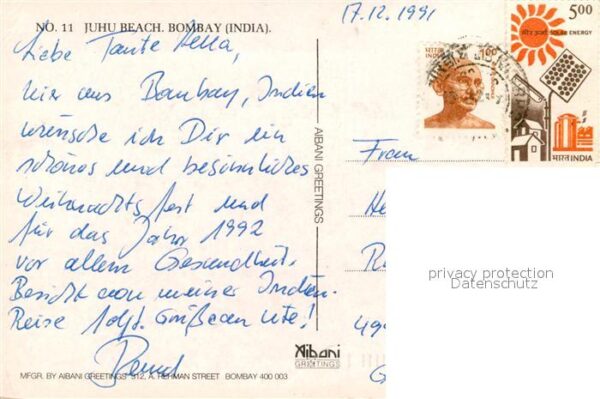 NO. 11 JUHU BEACH. BOMBAY (INDIA).
17.12.1991
Liebe Tante Hella,
hier aus Bombay, Indien
wünsche ich Dir ein
schönes und besinnliches
Weihnachtsfest und
für das Jahr 1992
vor allem Gesundheit.
Bericht von meiner Indien-
Reise folgt. Grüße an Ute!
Bernd
MFGR. BY AIBANI GREETINGS 512, A. REHMAN STREET BOMBAY 400 003
AIBANI GREETINGS
Aibani
GREETINGS
भारत INDIA
100
5.00
सौर ऊर्जा SOLAR ENERGY
भारत INDIA
Frau
He
R
499
G
privacy protection
Datenschutz